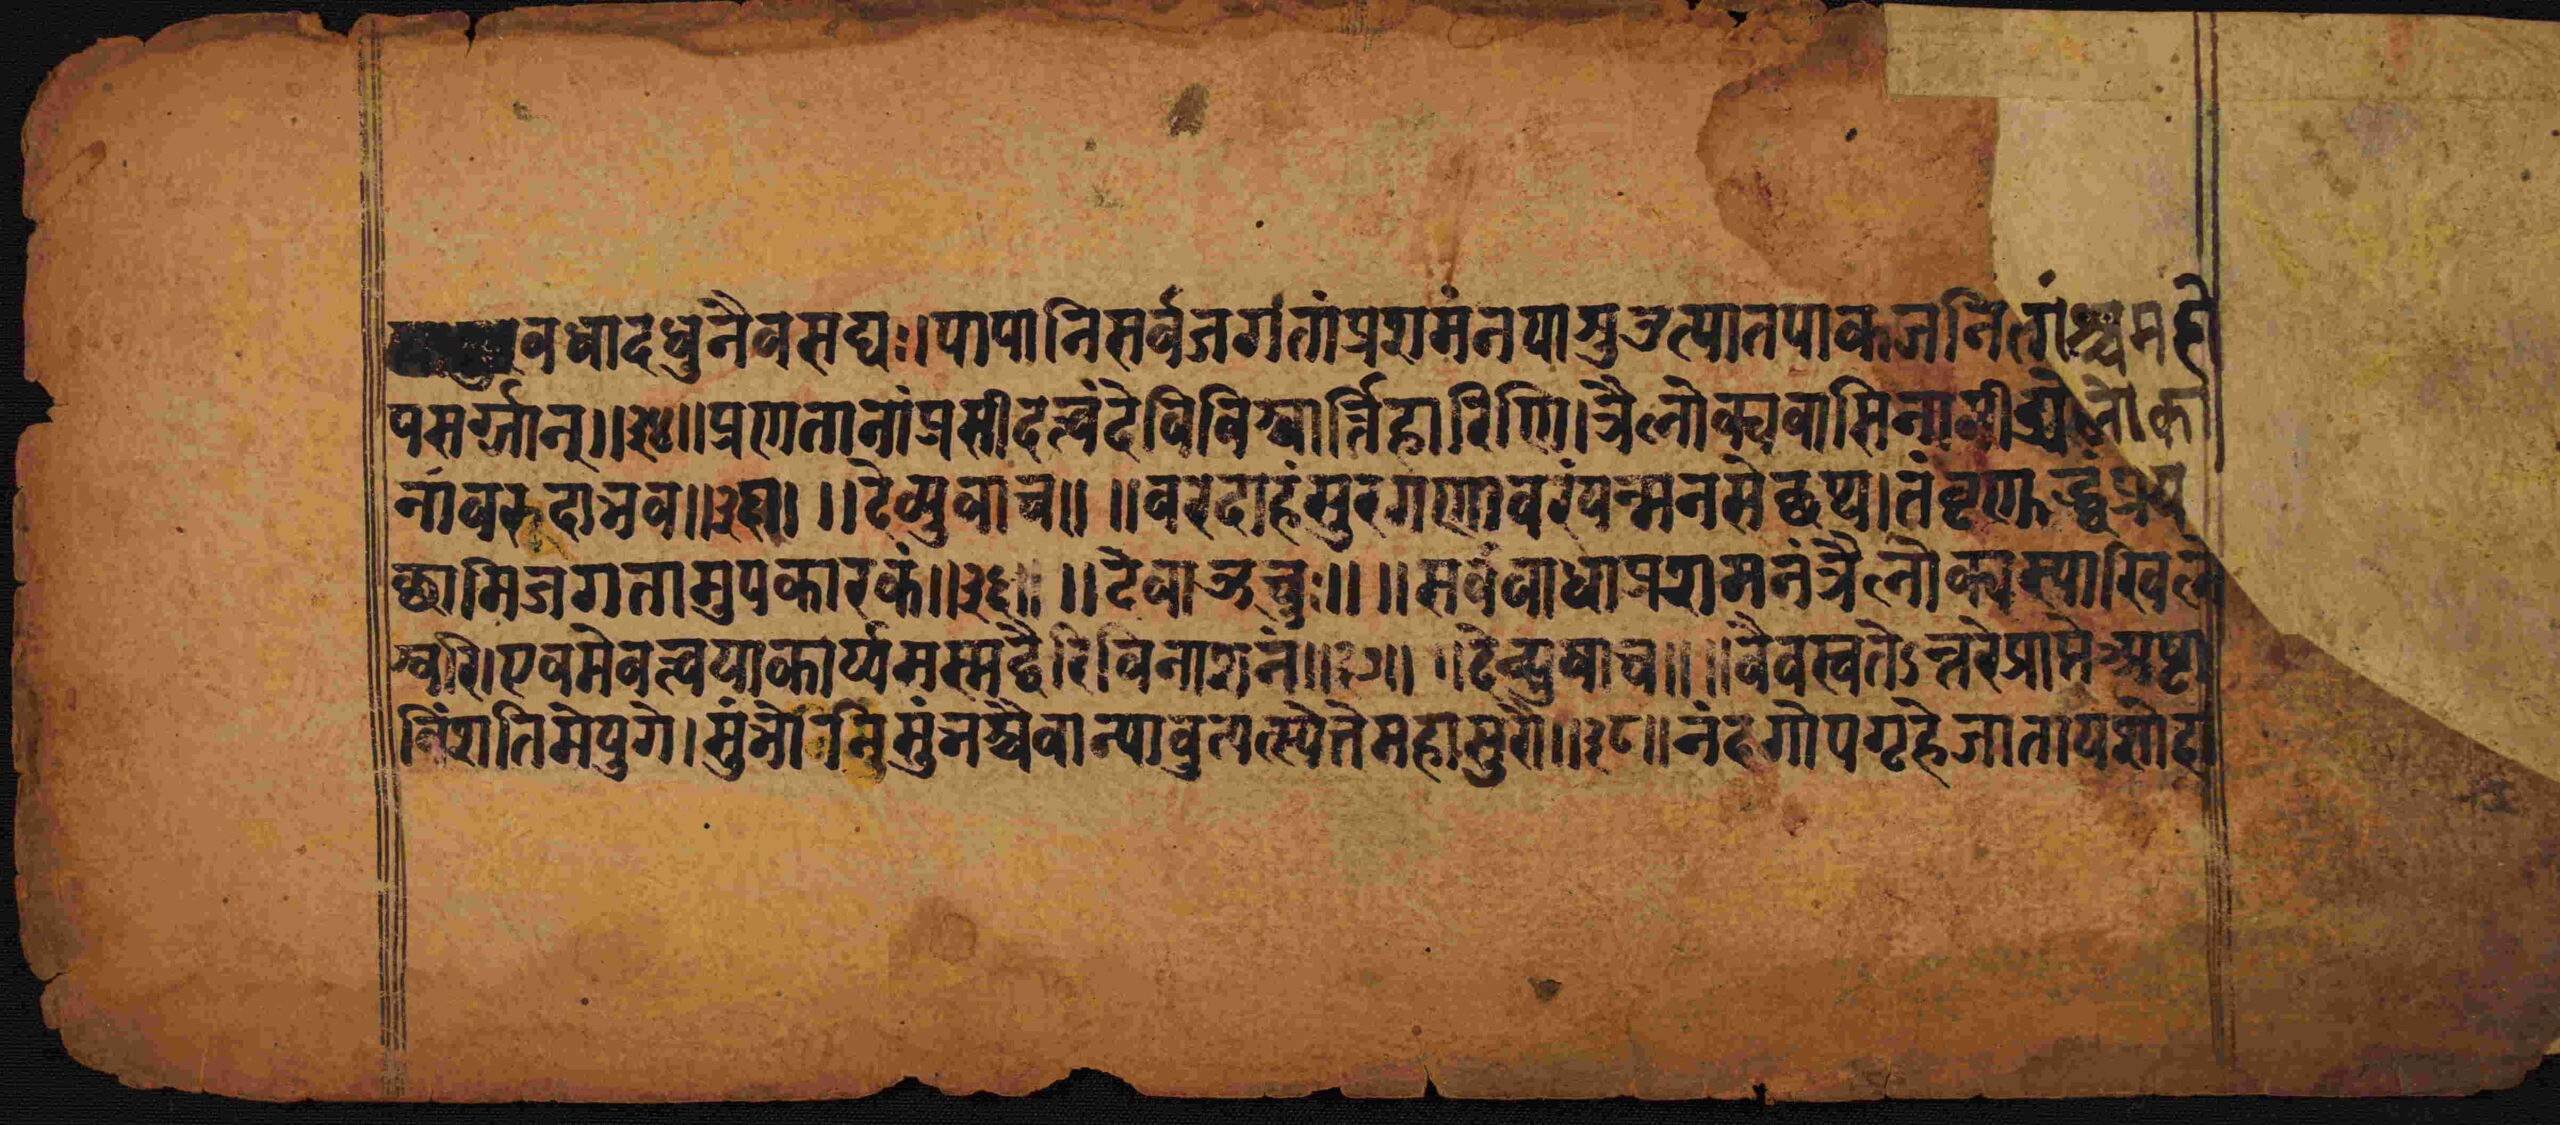 वधादधुनैवसद्यः।पापानिसर्वजगतांप्रशमंनयाशुउत्पातपाकजनितांश्चमहो
पसर्ग्गान्॥३४॥प्रणतानांप्रसीदत्वंदेविविश्वार्त्तिहारिणि।त्रैलोक्यवासिनामीड्येलोका
नांवरदाभव॥३५॥ ॥देव्युवाच॥ ॥वरदाहंसुरगणावरंयन्मनसेच्छथ।तंवृणुध्वंप्रय
च्छामिजगतामुपकारकं॥३६॥ ॥देवाऊचुः॥ ॥सर्वबाधाप्रशमनंत्रैलोक्यस्याखिले
श्वरि।एवमेवत्वयाकार्य्यमस्मद्वैरिविनाशनं॥३७॥ ॥देव्युवाच॥ ॥वैवस्वतेऽन्तरेप्राप्तेअष्टा
विंशतिमेयुगे।सुंभोनिसुंभश्चैवान्यावुत्पत्स्येतेमहासुरौ॥३८॥नंदगोपगृहेजातायशोदा